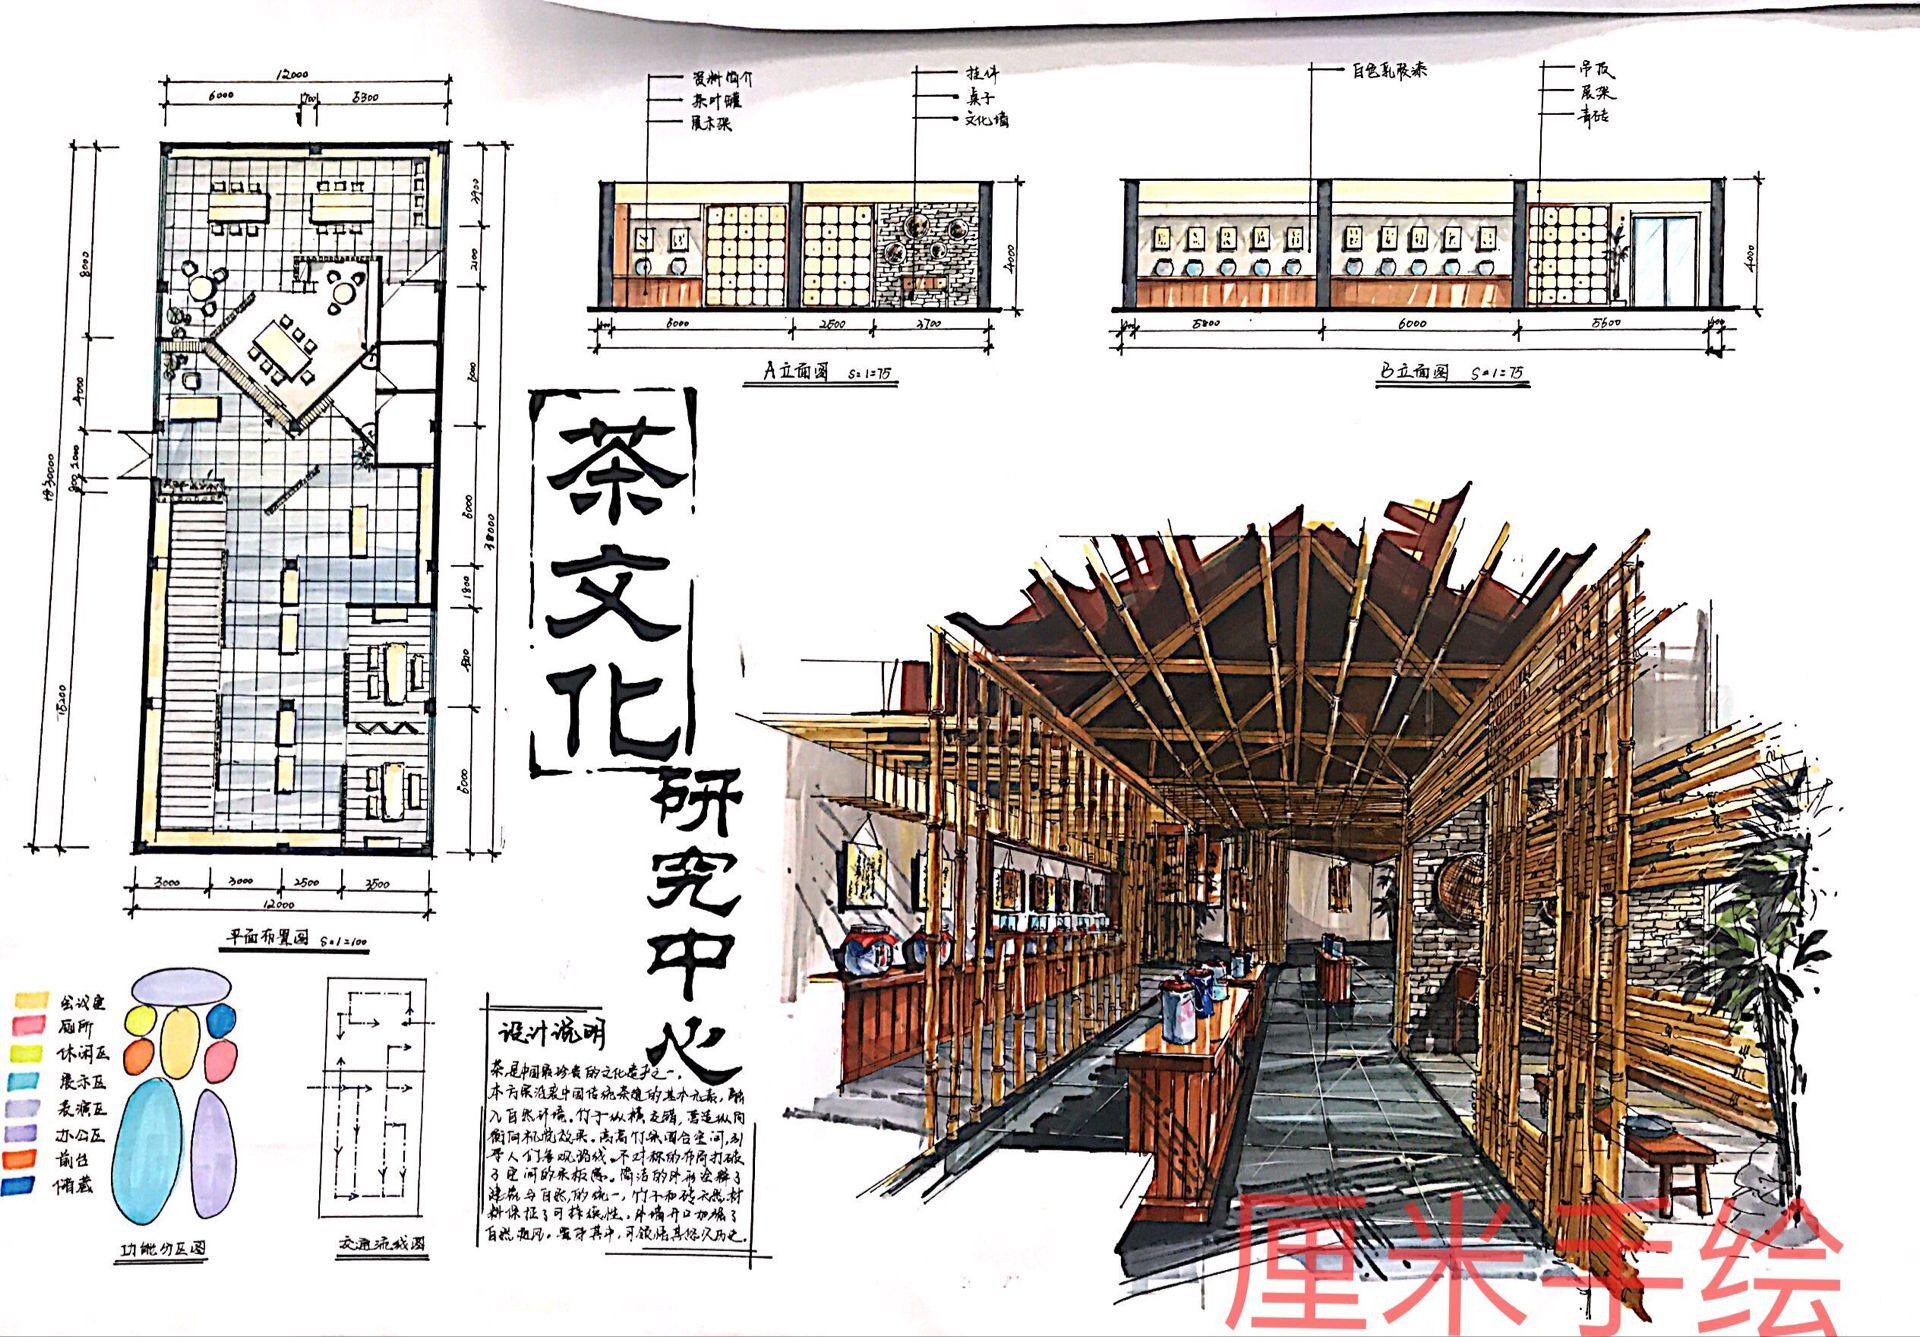 12000
6000
700
5300
资料简介
茶叶罐
展示架
挂件
桌子
文化墙
白色乳胶漆
吊顶
展架
青砖
6000
2500
2700
4000
A立面图 S=1=75
5800
6000
5600
4000
B立面图 S=1=75
8000
4000
15200
2900
2100
6000
6000
1800
6000
38000
3000
3000
2500
3500
12000
平面布置图 S=1=100
茶文化
研究中心
会议室
厕所
休闲区
展示区
表演区
办公区
前台
储藏
功能分区图
交通流线图
设计说明
茶是中国最珍贵的文化遗产之一，
本方案沿袭中国传统茶道的基本元素，融
入自然环境。竹子纵横交错，营造纵向
横向视觉效果。高高竹架围合空间，引
导人们参观路线。不对称的布局打破
了空间的呆板感。简洁的外形诠释了
建筑与自然的统一，竹子和砖天然材
料保证了可持续性。外墙开口加强了
自然通风。置身其中，可领悟其悠久历史。
厘米手绘